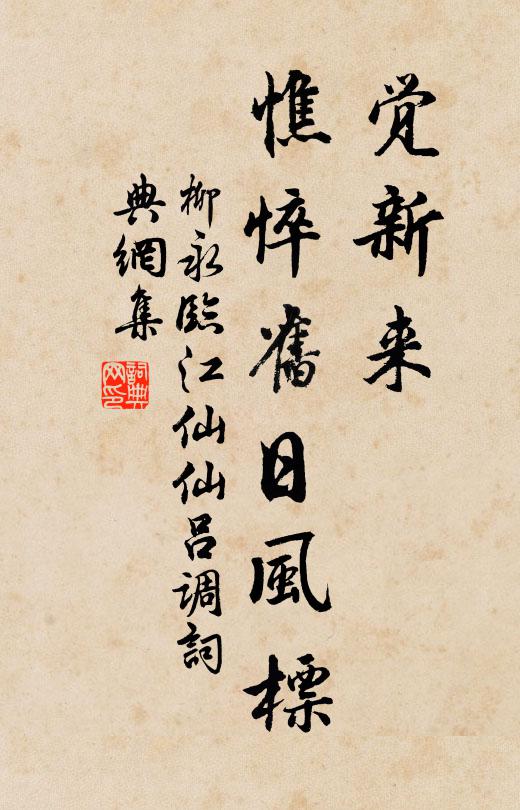 觉新来
憔悴舊日風標
柳永臨江仙仙吕调詞
典網集
詞典网印